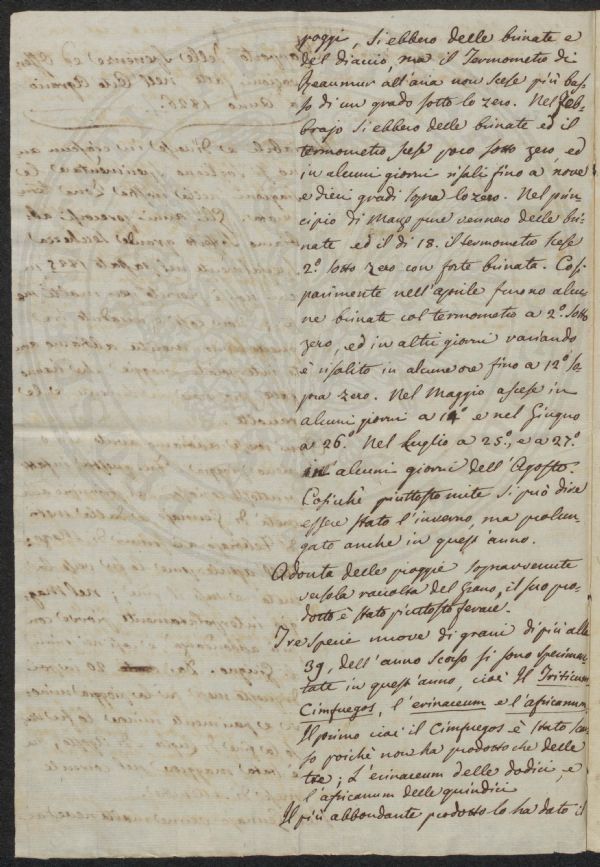 poggi, si ebbero delle brinate e
del diaccio, ma il Termometro di
Reaumur all'aria non scese più bas-
so di un grado sotto lo zero. Nel Feb-
brajo si ebbero delle brinate ed il
termometro scese poco sotto zero, ed
in alcuni giorni risalì fino a nove
e dieci gradi sopra lo zero. Nel prin-
cipio di Marzo pure vennero delle bri-
nate ed il dì 18. il termometro scese
2.° sotto zero con forte brinata. Cosi
parimente nell'aprile furono alcu-
ne brinate col termometro a 2.° sotto
zero, ed in altri giorni variando
è risalito in alcune ore fino a 12.° so-
pra zero. Nel Maggio ascese in
alcuni giorni a 14° e nel Giugno
a 26.° Nel Luglio a 25.°, e a 27.°
in alcuni giorni dell'Agosto.
Cosichè piuttosto mite si può dire
essere stato l'inverno, ma prolun-
gato anche in quest'anno.
Adonta delle pioggie sopravvenute
verso la raccolta del Grano, il suo pro-
dotto è stato piuttosto ferace.
Tre specie nuove di grani di più alle
39, dell'anno scorso si sono sperimen-
tate in quest'anno, cioè Il Triticum
Cimfuegos, l'erinaceum e l'africanum.
Il primo cioè il Cimfuegos è stato scar-
so poichè non ha prodotto che delle
tre; L'erinaceum delle dodici, e
l'africanum delle quindici
Il più abbondante prodotto lo ha dato il